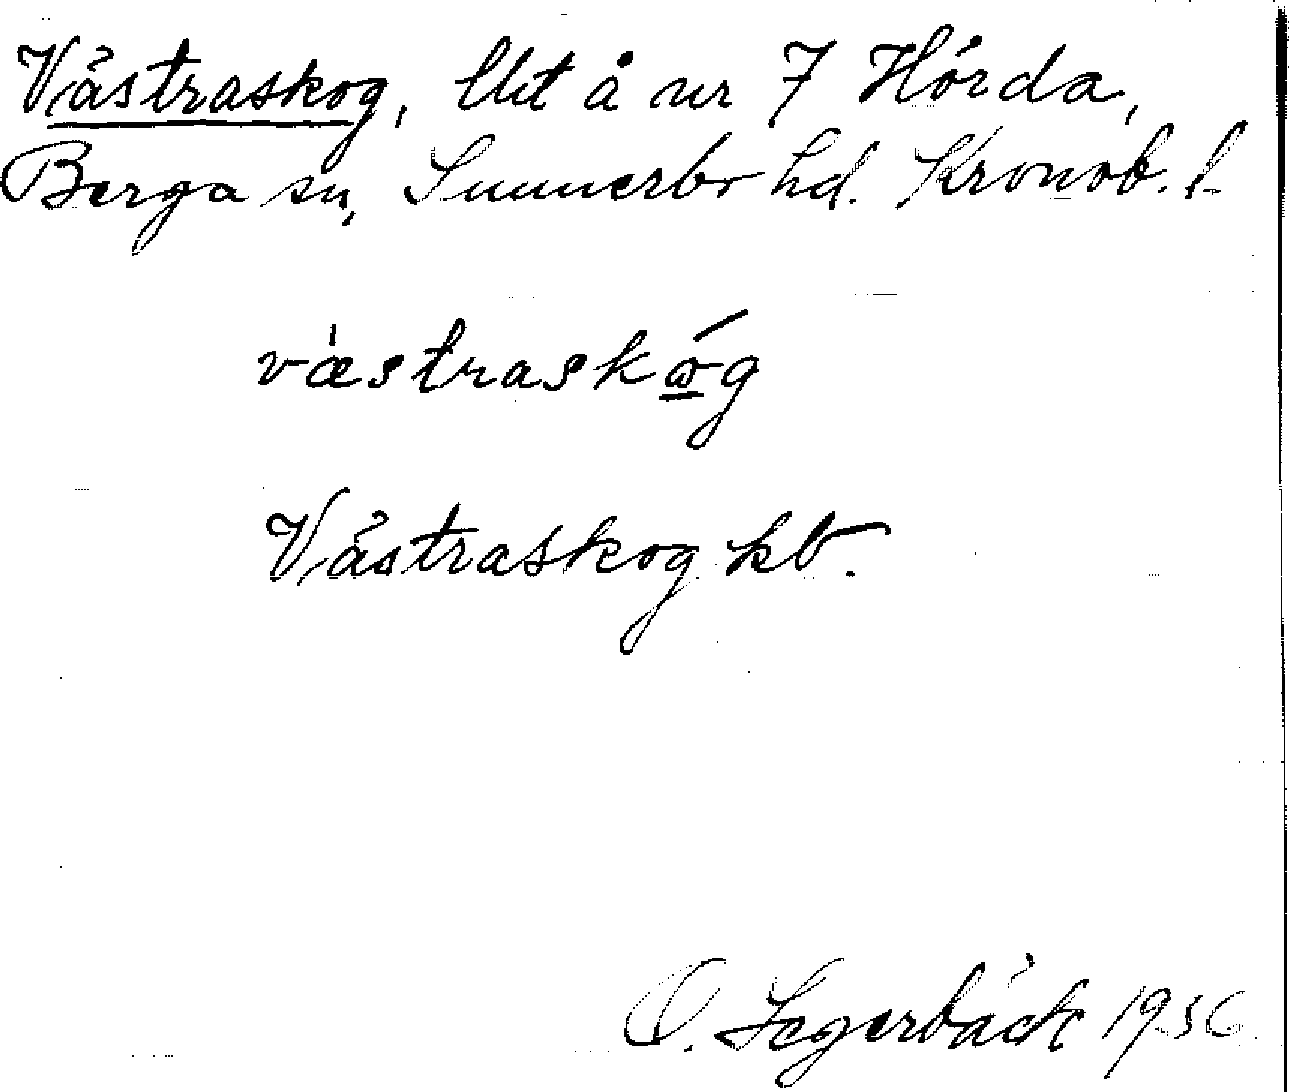 Västraskog, lht å nr 7 Hörda,
Berga sn, Sunnerbo hd. Kronob. l.
væstraskóg
Västraskog kb.
O. Segerbäck 1936